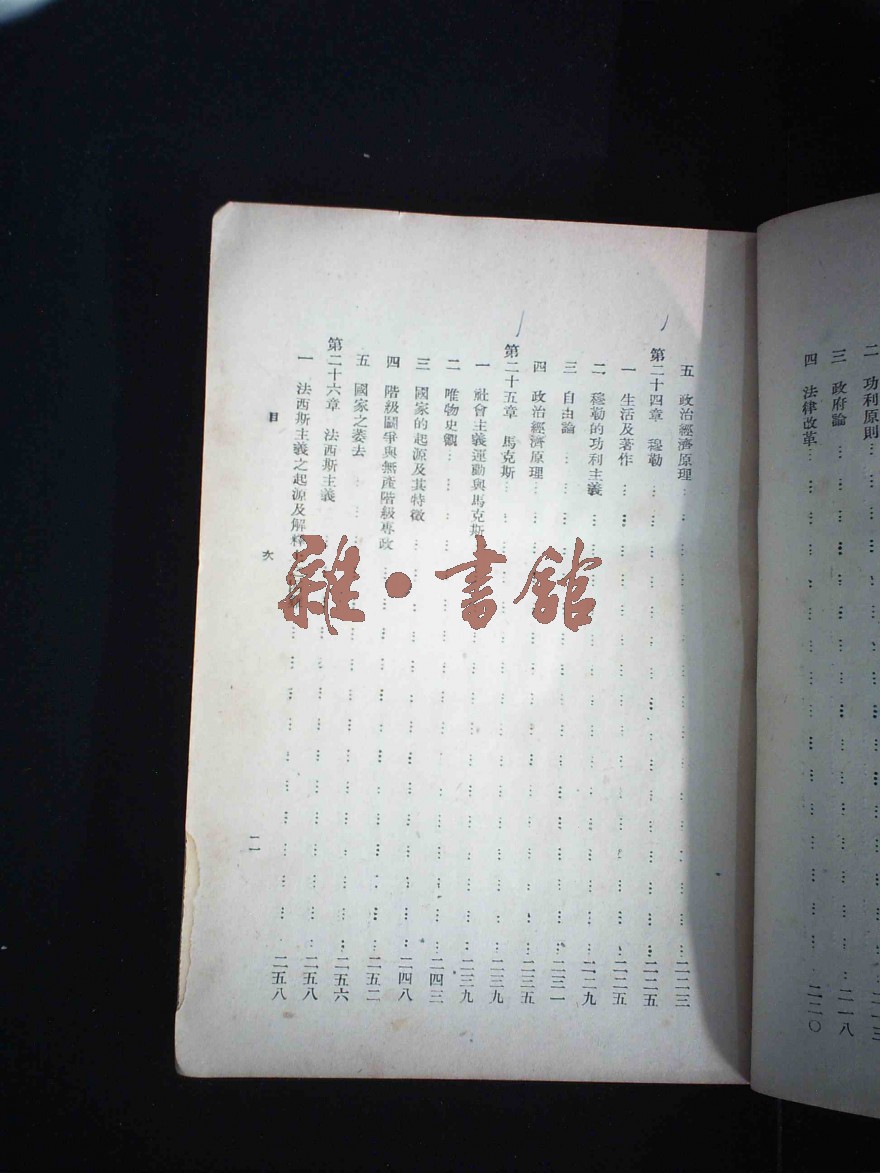 二 功利原則……二一三
三 政府論……二一八
四 法律改革……二二〇
五 政治經濟原理……二二三
第二十四章 穆勒……二二五
一 生活及著作……二二五
二 穆勒的功利主義……二二九
三 自由論……二三一
四 政治經濟原理……二三五
第二十五章 馬克斯……二三九
一 社會主義運動與馬克斯……二三九
二 唯物史觀……二四三
三 國家的起源及其特徵……二四八
四 階級鬭爭與無產階級專政……二五二
五 國家之萎去……二五六
第二十六章 法西斯主義……二五八
一 法西斯主義之起源及解釋……二五八
目 次 二
雜·書館